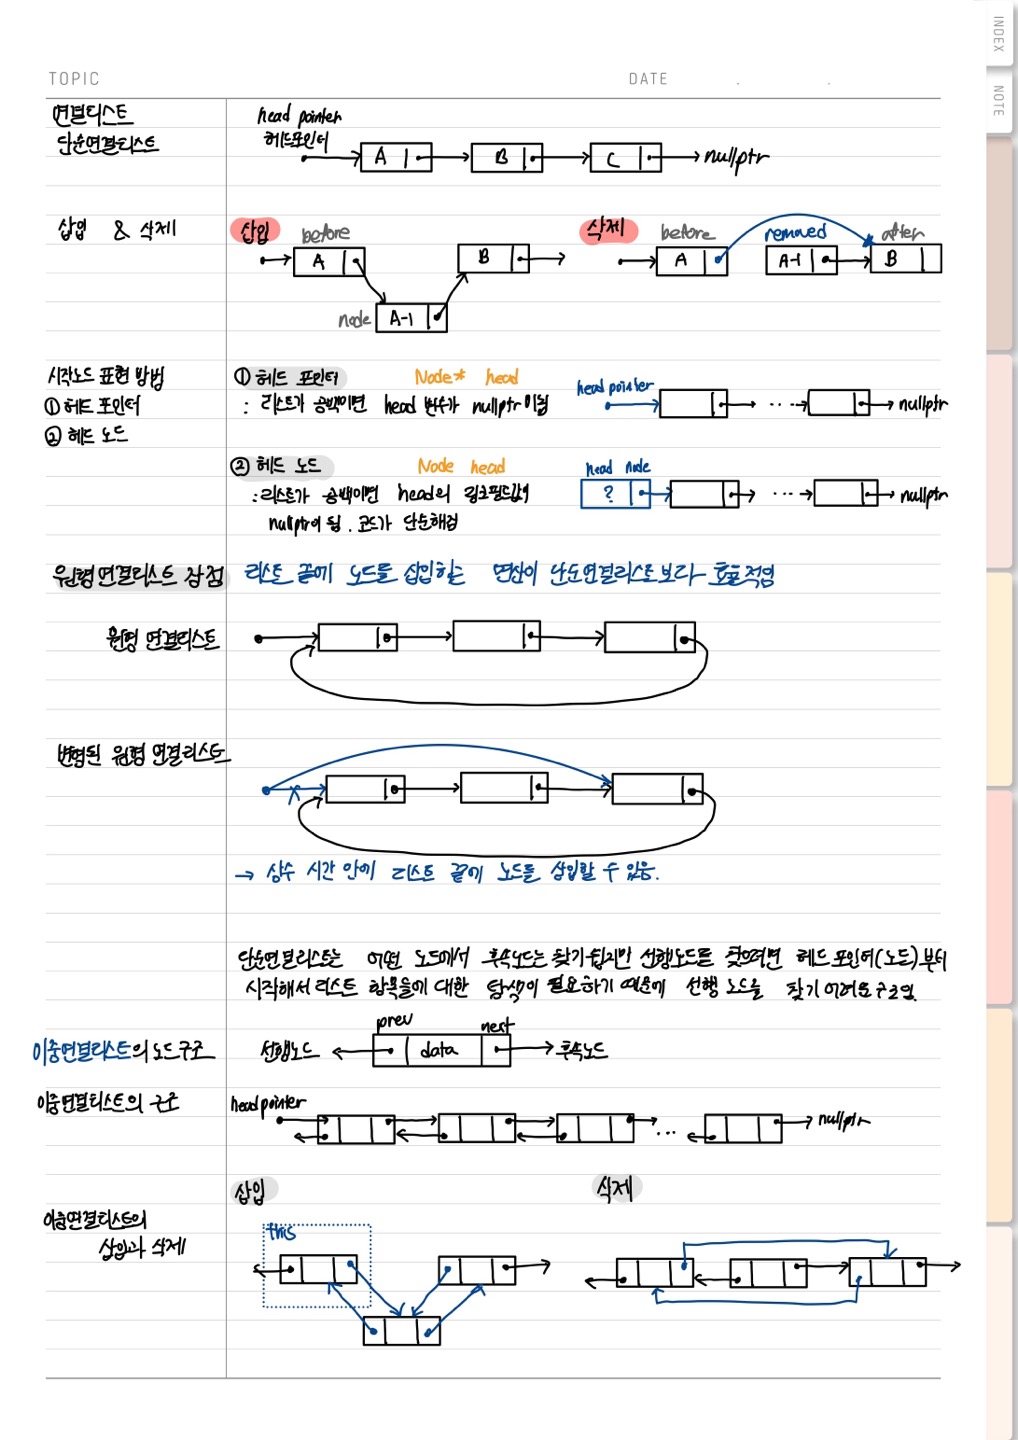 INDEX
NOTE
TOPIC
DATE . .
연결리스트
단순연결리스트
head pointer
헤드포인터
A B C nullptr
삽입 & 삭제
삽입
before
A B
node A-1
삭제
before removed after
A A-1 B
시작노드 표현 방법
① 헤드 포인터
② 헤드 노드
① 헤드 포인터 Node* head
: 리스트가 공백이면 head 변수가 nullptr이됨
head pointer
... nullptr
② 헤드 노드 Node head
: 리스트가 공백이면 head의 링크필드값이
nullptr이 됨. 코드가 단순해짐
head node
? ... nullptr
원형연결리스트 강점 리스트 끝에 노드를 삽입하는 연산이 단순연결리스트보다 효율적임
원형 연결리스트
변형된 원형 연결리스트
→ 상수 시간 안에 리스트 끝에 노드를 삽입할 수 있음.
단순연결리스트는 어떤 노드에서 후속노드는 찾기 쉽지만 선행노드를 찾으려면 헤드 포인터(노드)부터
시작해서 리스트 항목들에 대한 탐색이 필요하기 때문에 선행 노드를 찾기 어려운 구조임.
prev next
이중연결리스트의 노드구조 선행노드 data 후속노드
이중연결리스트의 구조 head pointer
... nullptr
삽입 삭제
이중연결리스트의
삽입과 삭제
this